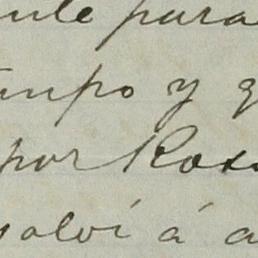 nte para
mpo y q
por Rosa
solví á a